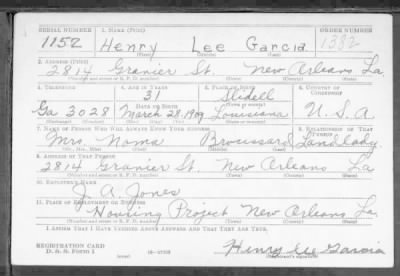 SERIAL NUMBER 1. NAME (Print) ORDER NUMBER
1152 Henry Lee Garcia 1382
(First) (Middle) (Last)
2. ADDRESS (Print)
2814 Granier St. New Orleans La.
(Number and street or R. F. D. number) (Town) (County) (State)
3. TELEPHONE 4. AGE IN YEARS 5. PLACE OF BIRTH 6. COUNTRY OF CITIZENSHIP
31 Slidell
DATE OF BIRTH (Town or county)
Ga 3028 March 28, 1909 Louisiana U.S.A
(Exchange) (Number) (Mo.) (Day) (Yr.) (State or country)
7. NAME OF PERSON WHO WILL ALWAYS KNOW YOUR ADDRESS 8. RELATIONSHIP OF THAT PERSON
Mrs. Noma Broussard Landlady
(Mr., Mrs., Miss) (First) (Middle) (Last)
9. ADDRESS OF THAT PERSON
2814 Granier St. New Orleans La.
(Number and street or R. F. D. number) (Town) (County) (State)
10. EMPLOYER'S NAME
J. A. Jones
11. PLACE OF EMPLOYMENT OR BUSINESS
Housing Project New Orleans La.
(Number and street or R. F. D. number) (Town) (County) (State)
I AFFIRM THAT I HAVE VERIFIED ABOVE ANSWERS AND THAT THEY ARE TRUE.
REGISTRATION CARD
D. S. S. FORM 1 (over) Henry Lee Garcia
(Registrant's signature)